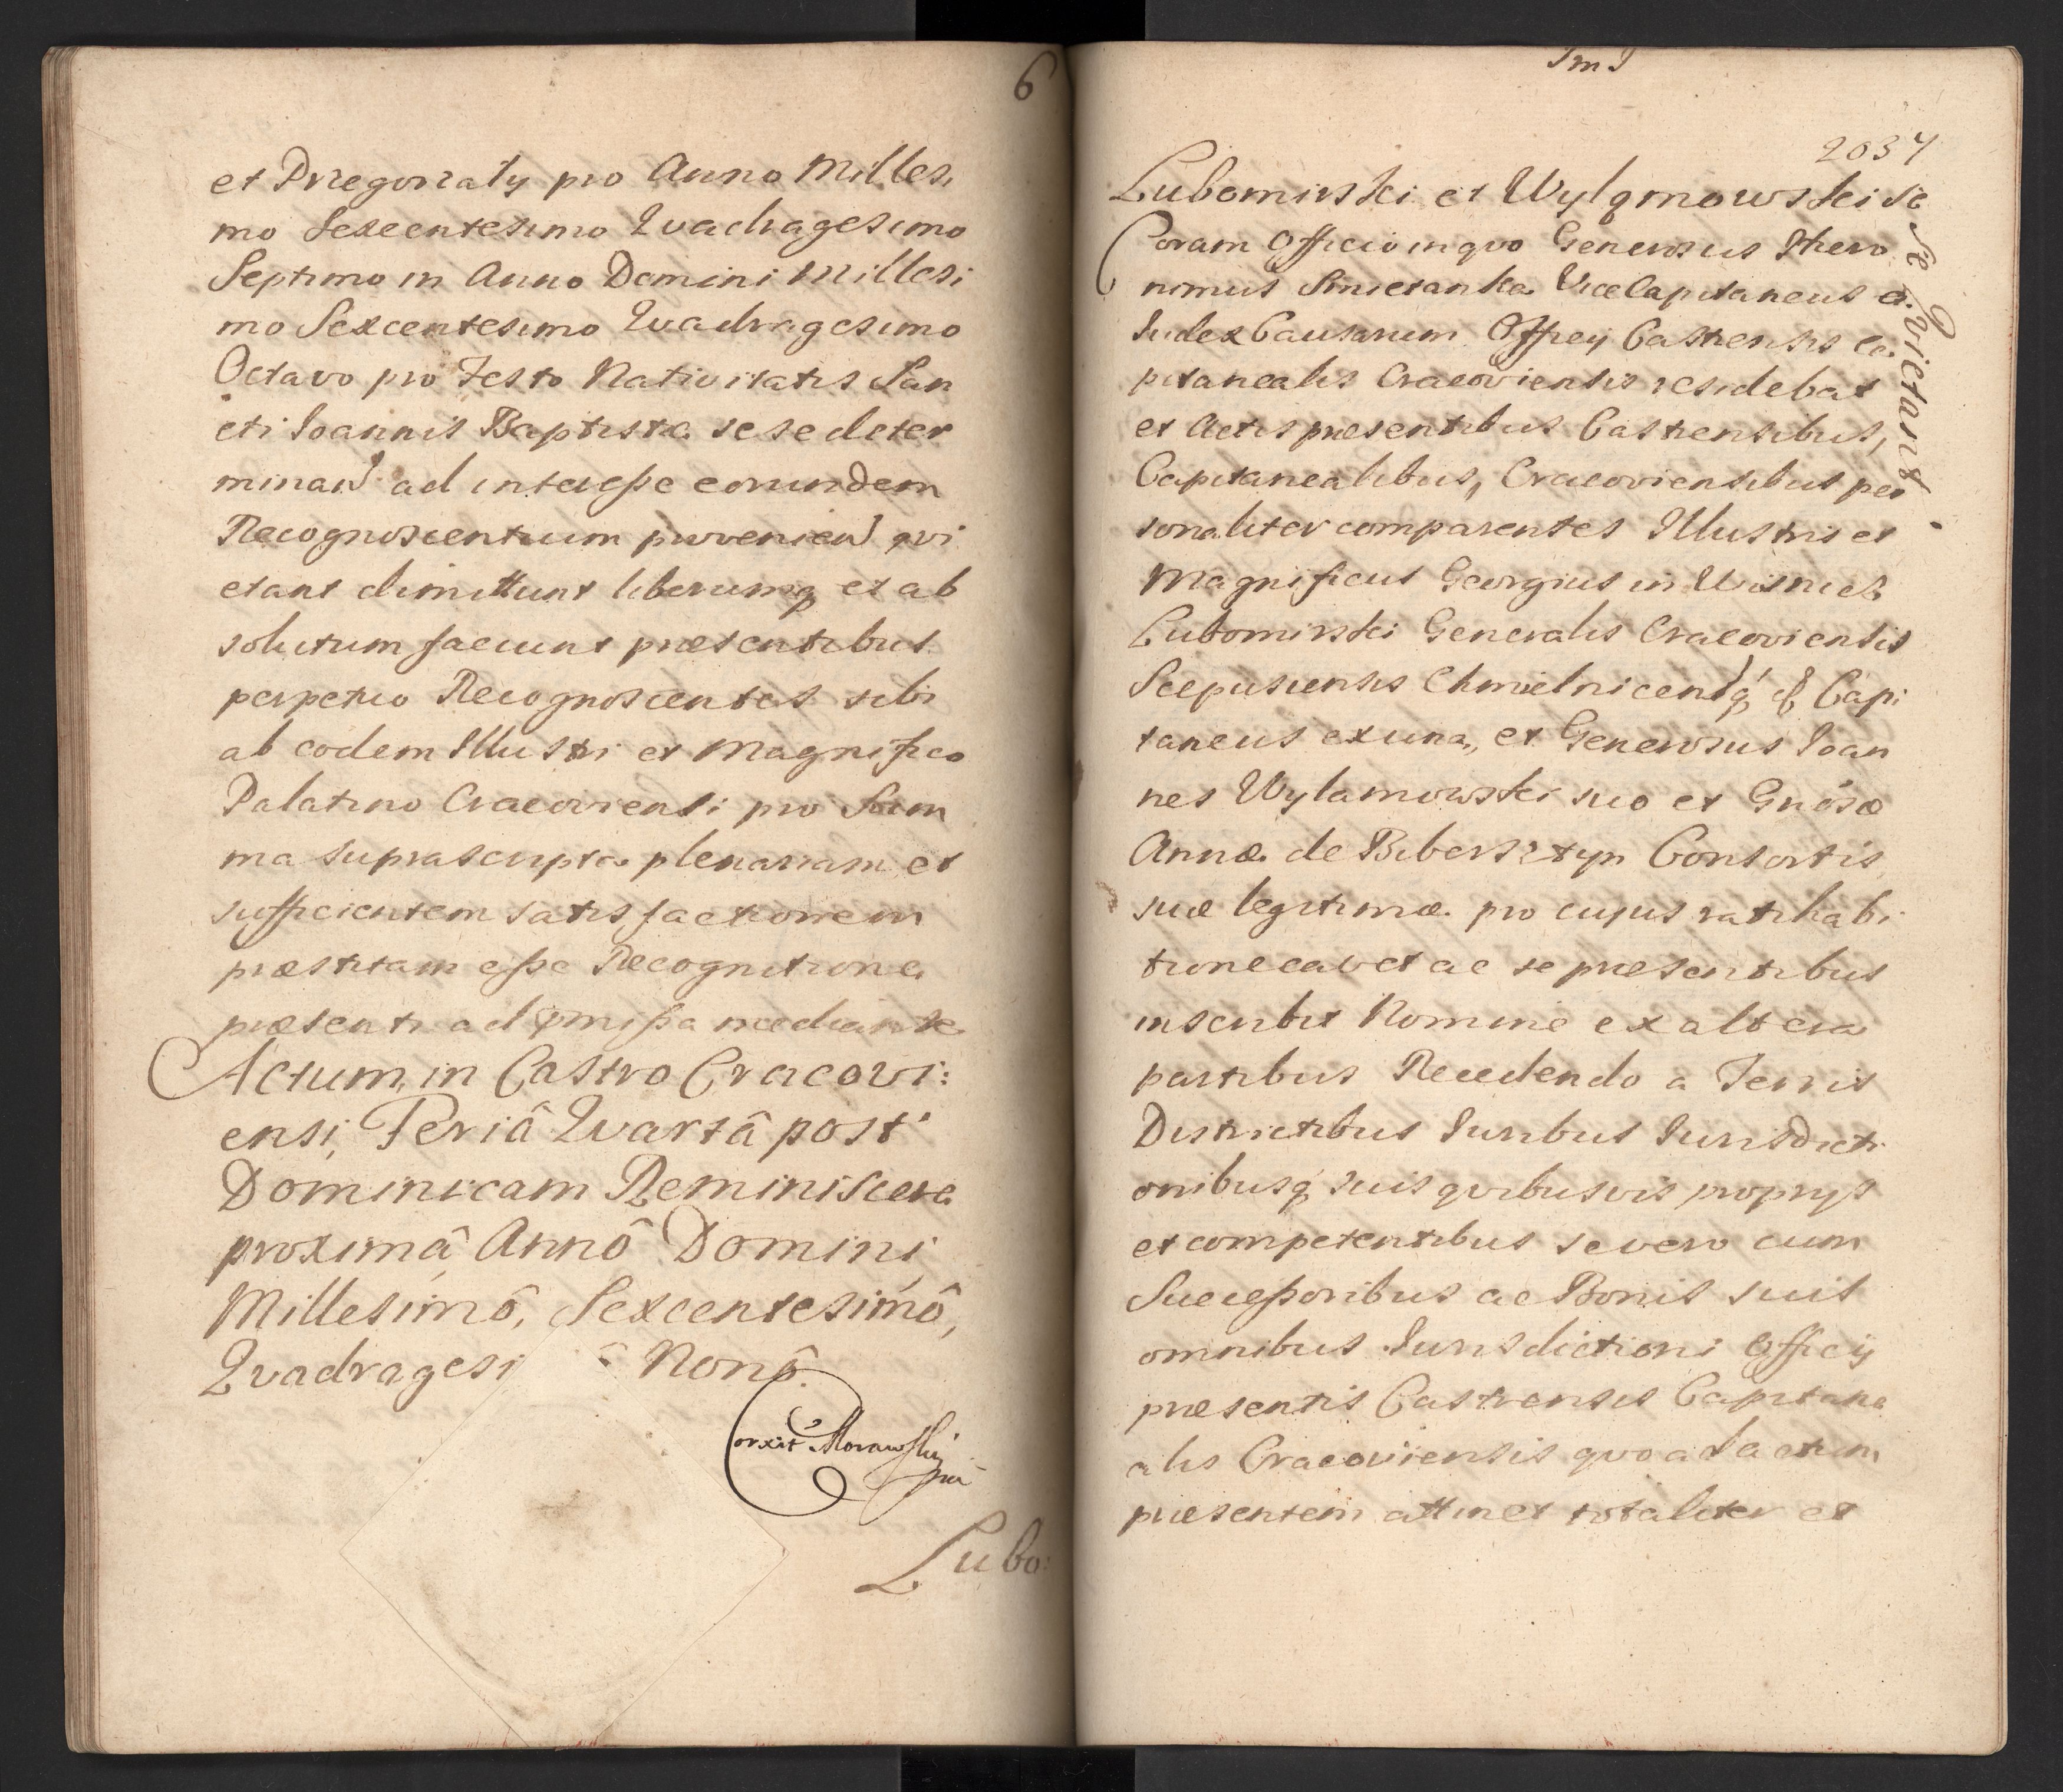 6
et Przegonaty pro Anno Milles,
mo Sexcentesimo Qvadragesimo
Septimo in Anno Domini Millesi
mo Sexcentesimo Qvadragesimo
Octavo pro Festo Nativitatis San
cti Joannis Baptistæ sese deter
minan ad interesse eorundem
Recognoscentium provenien qvi
etant dimittunt liberumq et ab
solutum faciunt præsentibus
perpetuo Recognoscentes sibi
ab eodem Illustri et Magnifico
Palatino Cracoviensi pro Sum
ma suprascripta plenariam et
sufficientem satisfactionem
præstitam esse Recognitione
præsenti ad præmissa mediante
Actum in Castro Cracovi:
ensi, Feriâ Qvartâ post
Dominicam Reminiscere
proximâ Annô Domini
Millesimô, Sexcentesimô,
Qvadragesi ô Nonô.
Corxit Morawski
mp
Lubo:
Im I
2037
Lubomirski et Wylamowski se
Coram Officio inqvo Generosus Ihero
nimus Smietanka ViceCapitaneus et
Iudex Causarum Officij Castrensis Ca
pitanealis Cracoviensis residebat
et Actis præsentibus Castrensibus,
Capitanealibus, Cracoviensibus per
sonaliter comparentes Illustris et
Magnificus Georgius in Wisnicz
Lubomirski Generalis Cracoviensis
Scepusiensis Chmielnicen q Capi
taneus exuna, et Generosus Ioan
nes Wylamowski suo et Gnosæ
Annæ de Bibersztyn Consortis
suæ legitimæ pro cujus ratihabi
tione cavet ac se præsentibus
inscribit Nomine ex altera
partibus Recedendo a Terris
Districtibus Iuribus Iurisdicti
onibusq suis qvibusvis proprijs
et competentibus se vero cum
Successoribus ac Bonis suis
omnibus Iurisdictioni Officij
præsentis Castrensis Capitane
alis Cracoviensis qvo ad actum
præsentem attinet totaliter et
Se Qvietant